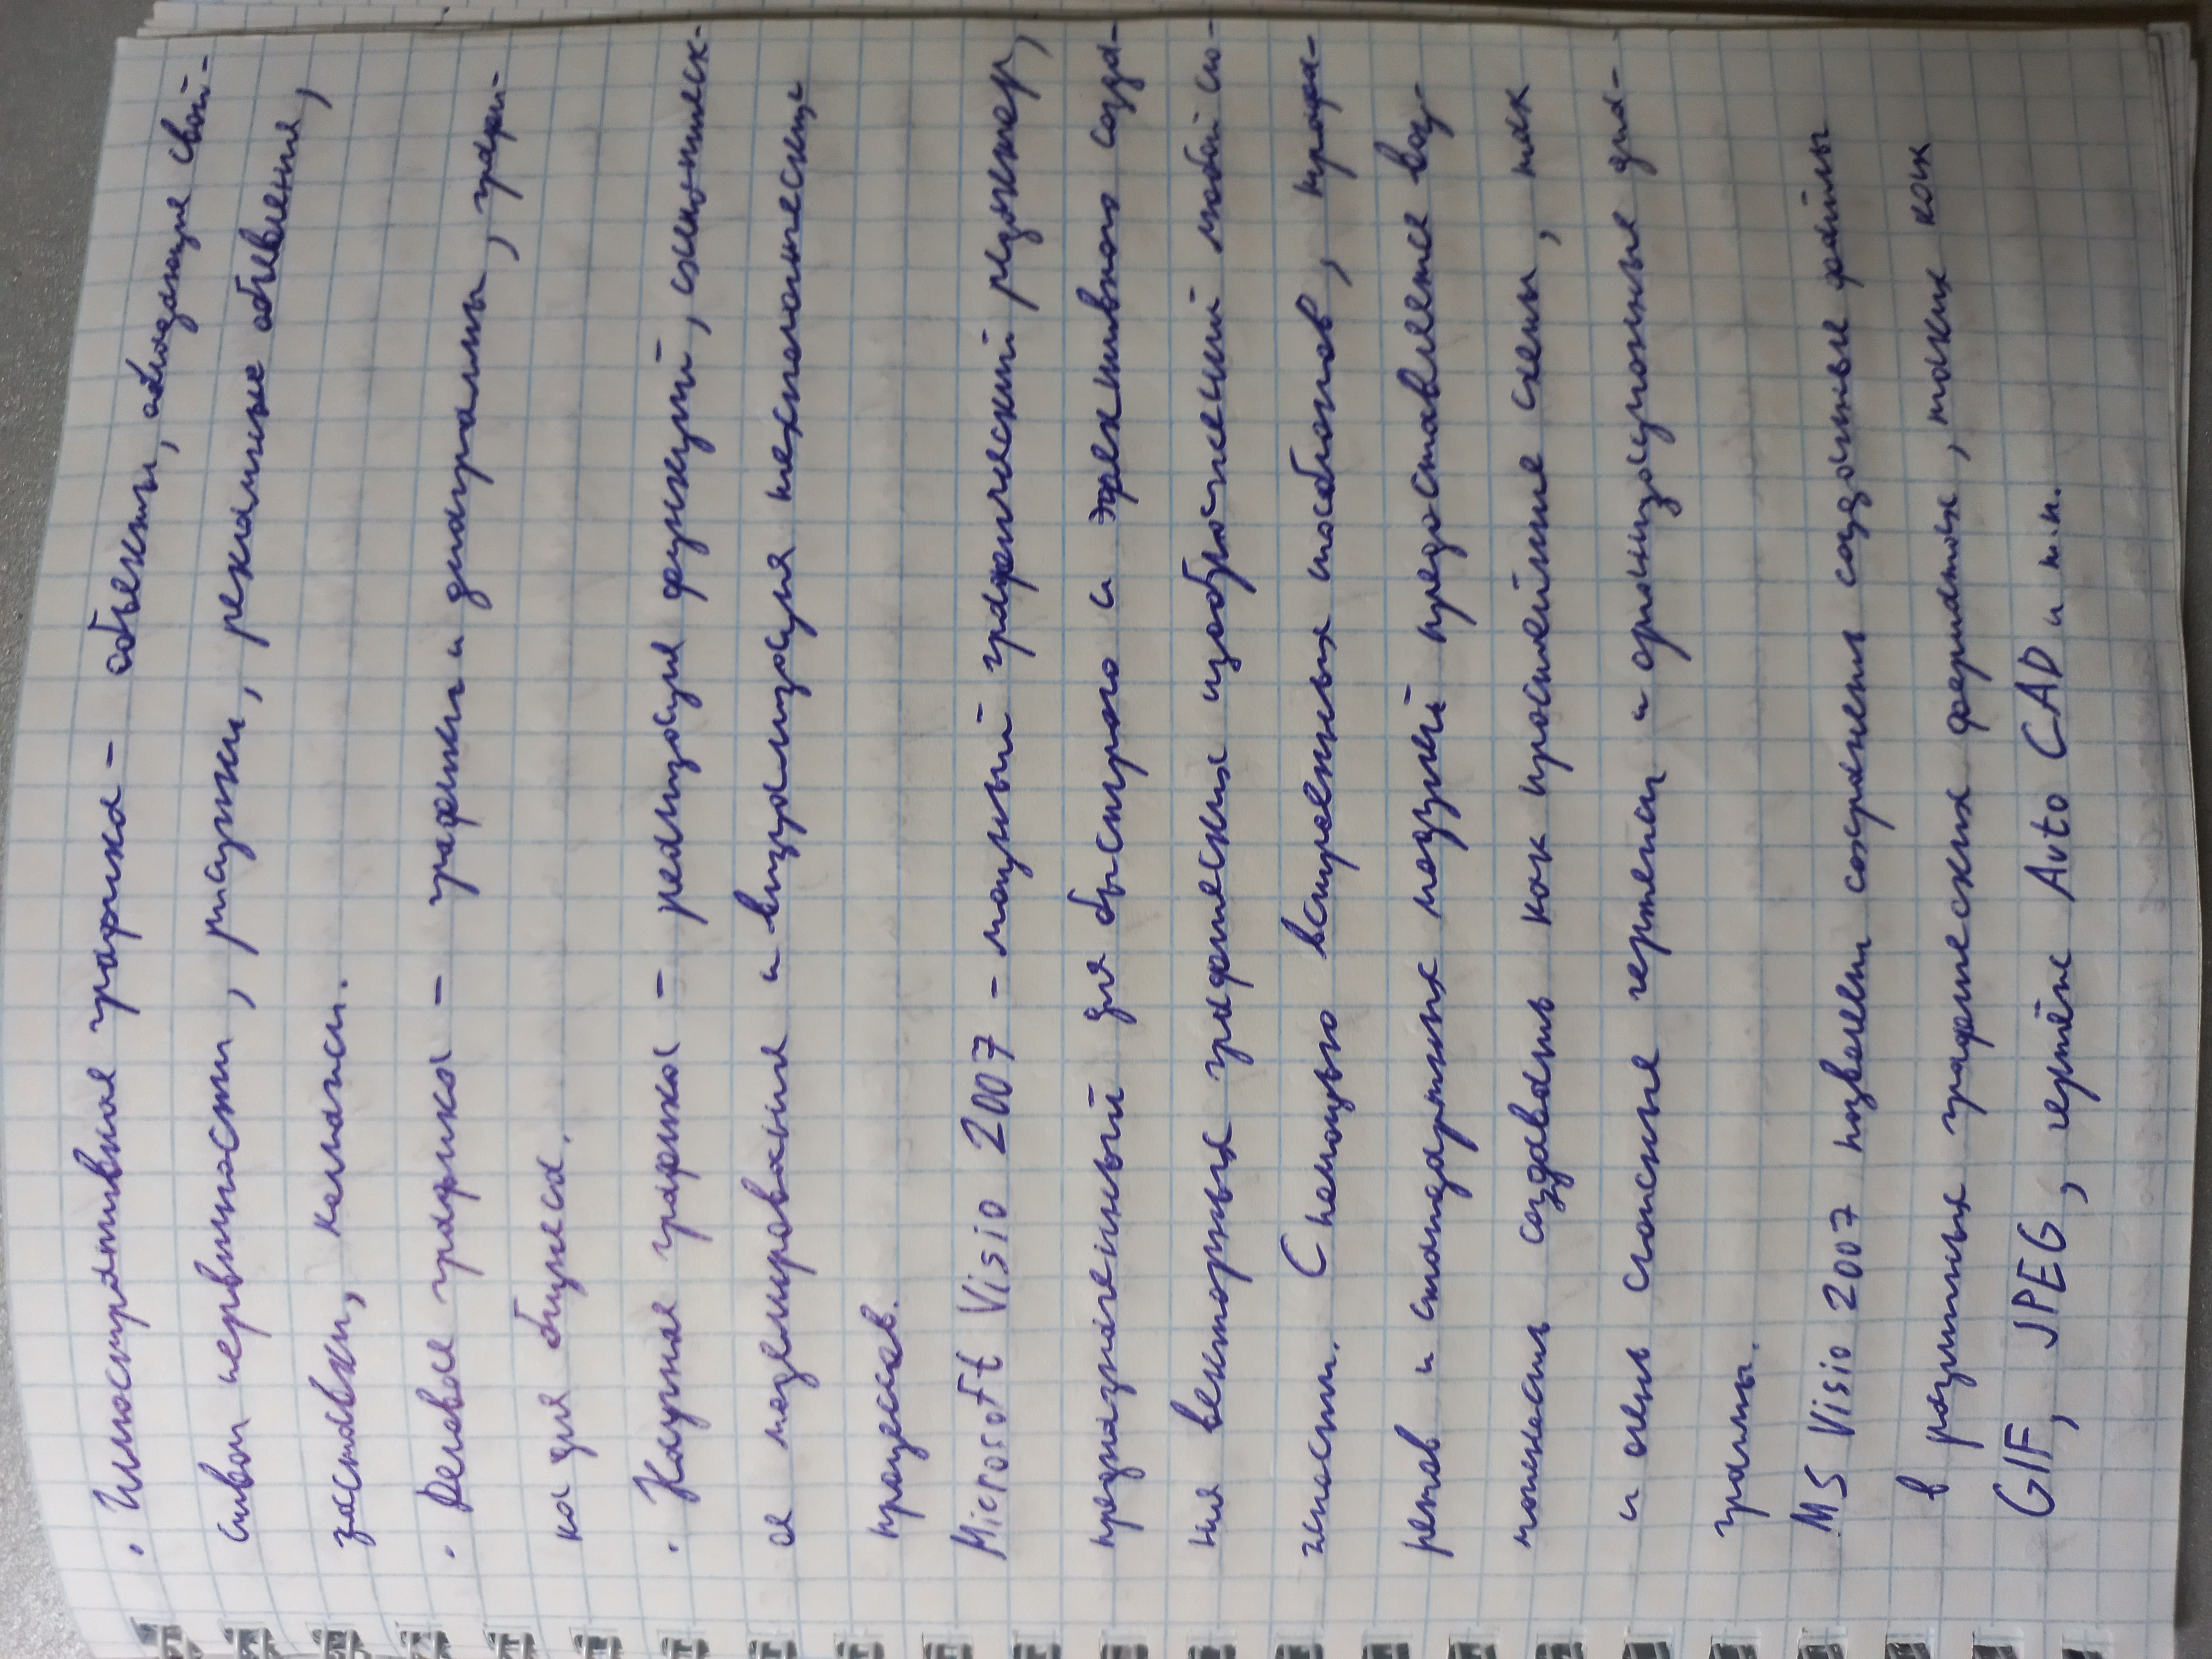 · Иллюстративная графика – объекты, обладающие свой-
ством первичности, рисунки, рекламные объявления,
заставки, комиксы.
· Деловая графика – графики и диаграммы, графи-
ка для бизнеса.
· Научная графика – реализация функций, схематическ-
ое моделирование и визуализация технологических
процессов.
Microsoft Visio 2007 – мощный графический редактор,
предназначенный для быстрого и эффективного созда-
ния векторных графических изображений любой сло-
жности. С помощью встроенных шаблонов, трафа-
ретов и стандартных модулей предоставляется воз-
можность создавать как простейшие схемы, так
и очень сложные чертежи и организационные диа-
граммы.
MS Visio 2007 позволяет сохранять созданные файлы
в различных графических форматах, таких как
GIF, JPEG, чертёж Auto CAD и т.п.